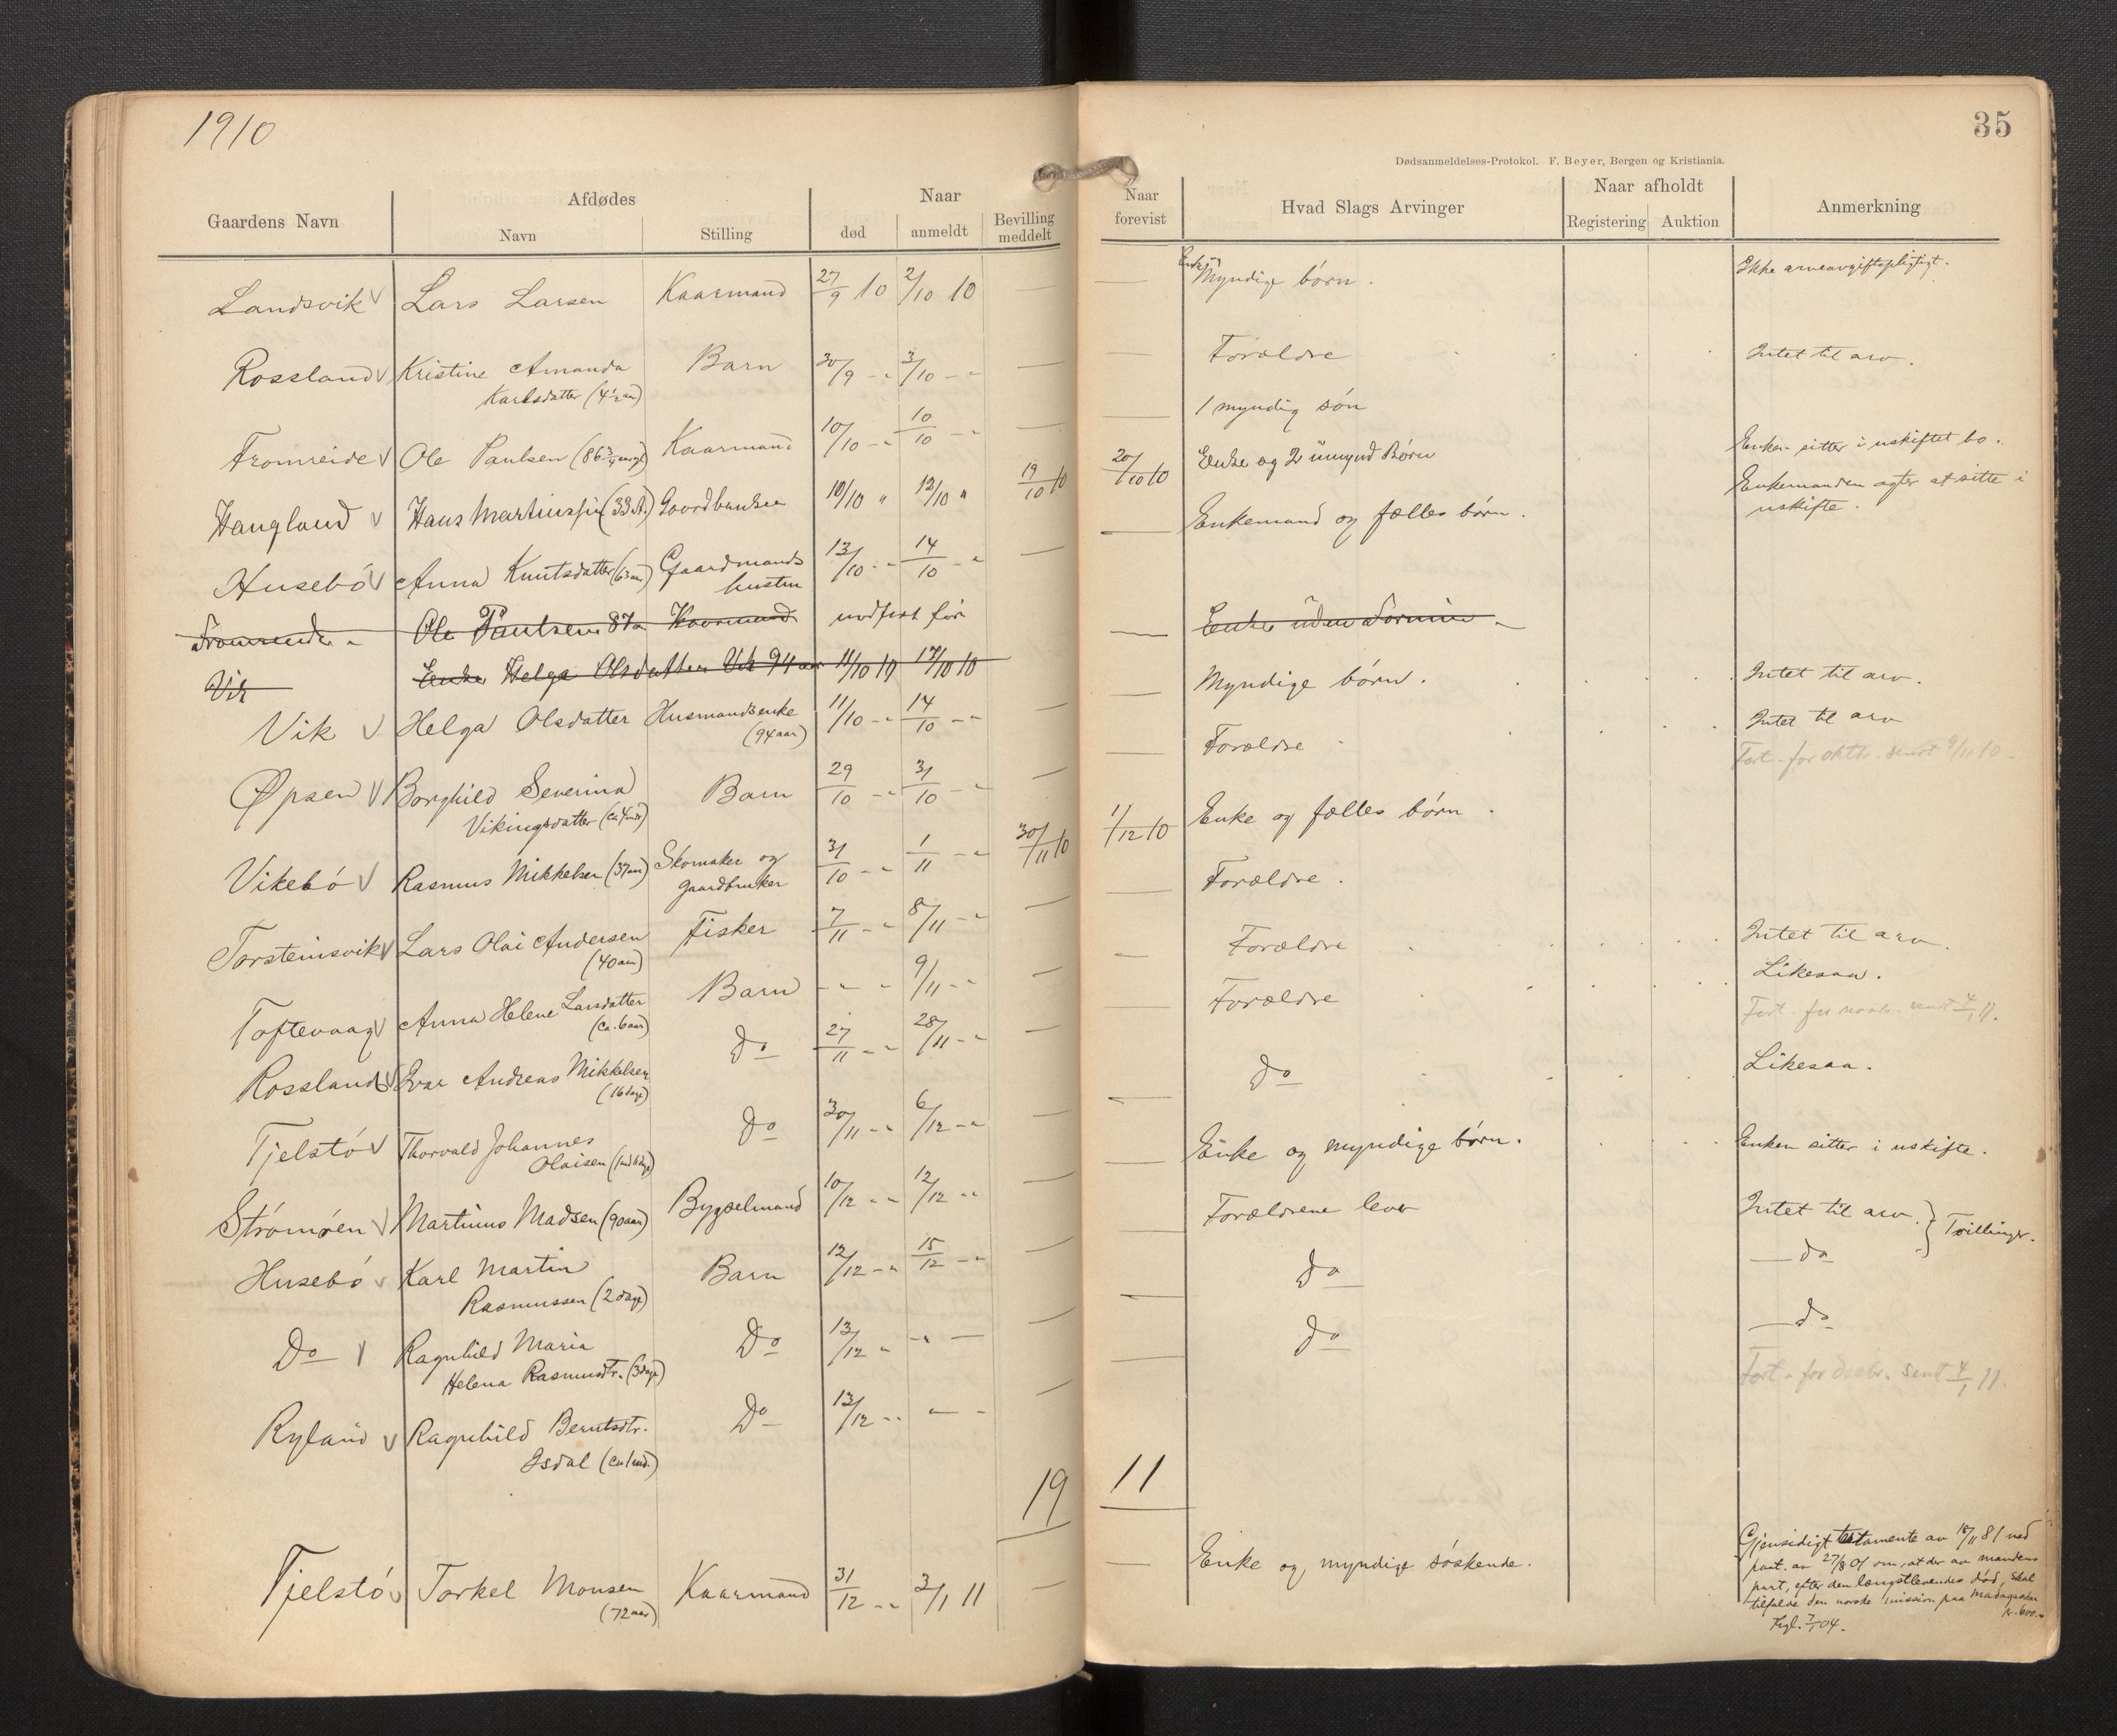 1910
Gaardens Navn
Afdødes
Navn
Stilling
Naar
død
anmeldt
Bevilling
meddelt
Landsvik V Lars Larsen Kaarmand 27/9 10 2/10 10 —
Rossland V Kristine Amanda Barn 30/9 - " 3/10 - " —
Karlsdatter (4½ aar)
Fromreide V Ole Paulsen (86¾ aar gl) Kaarmand 10/10 - " 10/10 - " —
Haugland V Hans Martinssen (33 A.) Gaardbruker 10/10 " 12/10 " 19/10 10
Husebø V Anna Knutsdatter (63 aar) Gaardmands 13/10 - " 14/10 - " —
hustru
Fromreide - Ole Paulsen 87a Kaarmand indført før
Vik Enke Helga Olsdatter Vik 94 aar 11/10 10 14/10 10
Vik V Helga Olsdatter Husmandsenke 11/10 - " 14/10 - " —
(94 aar)
Øpsen V Borghild Severina Barn 29/10 - " 31/10 - " —
Vikingsdatter (ca 4 mdr)
Vikebø V Rasmus Mikkelsen (37 aar) Skomaker og 31/10 - " 1/11 - " 30/11 10
gaardbruker
Torsteinsvik V Lars Olai Andersen Fisker 7/11 - " 8/11 - " —
(40 aar)
Toftevaag V Anna Helene Larsdatter Barn - " - " 9/11 - " —
(ca. 6 aar)
Rossland V Ivar Andreas Mikkelsen Do 27/11 - " 28/11 - " —
(16 dage)
Tjelstø V Thorvald Johannes Do 30/11 - " 6/12 - " —
Olaisen
Strømøen V Martinus Madsen (90 aar) Bygselmand 10/12 - " 12/12 - " —
Husebø V Karl Martin Barn 12/12 - " 15/12 - " —
Rasmussen (2 dage)
Do V Ragnhild Maria Do 13/12 " - " — —
Helena Rasmusdtr. (3 dage)
Ryland V Ragnhild Berntsdtr. Do 13/12 - " — - —
Isdal (ca 1 md.)
19
Tjelstø V Torkel Monsen Kaarmand 31/12 - " 3/1 11 —
(72 aar)
35
Dødsanmeldelses-Protokol. F. Beyer, Bergen og Kristiania.
Naar
forevist
Hvad Slags Arvinger
Naar afholdt
Registering
Auktion
Anmerkning
— Enke og Myndige børn. Ikke arveavgiftspligtigt.
— Forældre Intet til arv.
— 1 myndig søn
20/10 10 Enke og 2 umynd Børn Enken sitter i uskiftet bo.
— Enkemand og fælles børn. Enkemanden agter at sitte i
uskifte.
— Enke uden Formue -
— Myndige børn. Intet til arv.
— Forældre Intet til arv
Fort. for oktbr. sendt 9/11 10
1/12 10 Enke og fælles børn.
— Forældre.
— Forældre Intet til arv.
— Forældre Likesaa.
Fort. for novbr. sendt 4/1 11.
— Do Likesaa.
— Enke og myndige børn. Enken sitter i uskifte.
— Forældrene lever Intet til arv. } Tvillinger.
— Do — do
— Do — do
Fort. for decbr. sendt 4/1 11.
11
— Enke og myndige søskende.
Gjensidigt testamente av 18/11 81 med
paat. av 27/8 01 om, at der av mandens
part, efter den længstlevendes død, skal
tilfalde den norske mission paa Madagaskar
kr. 600.-
Tgl. 7/1 04.